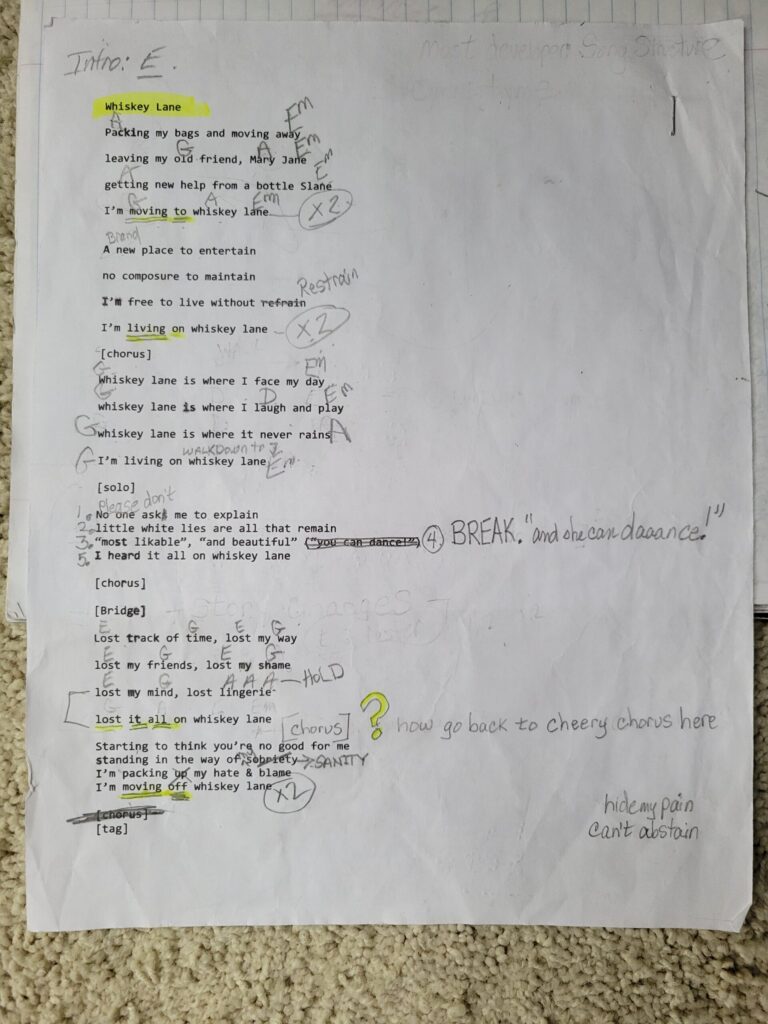 Most developed Song Structure
Intro: E.
Whiskey Lane
A Em
Packing my bags and moving away
G A Em
leaving my old friend, Mary Jane
A E
getting new help from a bottle Slane
G A Em
I'm moving to whiskey lane X2
Brand
A new place to entertain
no composure to maintain
Restrain
I'm free to live without refrain
I'm living on whiskey lane - X2
[chorus]
G Em
Whiskey lane is where I face my day
G D Em
whiskey lane is where I laugh and play
G whiskey lane is where it never rains A
WALKDOWN to
G I'm living on whiskey lane Em
[solo]
Please don't
1. No one asks me to explain
2. little white lies are all that remain
3. "most likable", "and beautiful" ("you can dance!") 4 BREAK. "and she can daaance!"
5. I heard it all on whiskey lane
[chorus]
[Bridge]
Story changes
E G E G
Lost track of time, lost my way
E G E G
lost my friends, lost my shame
E G A A A - HOLD
lost my mind, lost lingerie
G A Em
lost it all on whiskey lane [chorus] ? how go back to cheery chorus here
Starting to think you're no good for me
standing in the way of sobriety → SANITY
I'm packing up my hate & blame
I'm moving off whiskey lane X2
[chorus]
[tag]
hide my pain
can't abstain